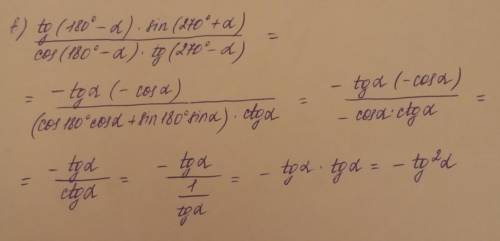 b) tg(180°-α)·sin(270°+α) / cos(180°-α)·tg(270°-α) =
= -tgα(-cosα) / (cos180°cosα+sin180°sinα)·ctgα = -tgα(-cosα) / -cosα·ctgα =
= -tgα / ctgα = -tgα / (1/tgα) = -tgα·tgα = -tg²α